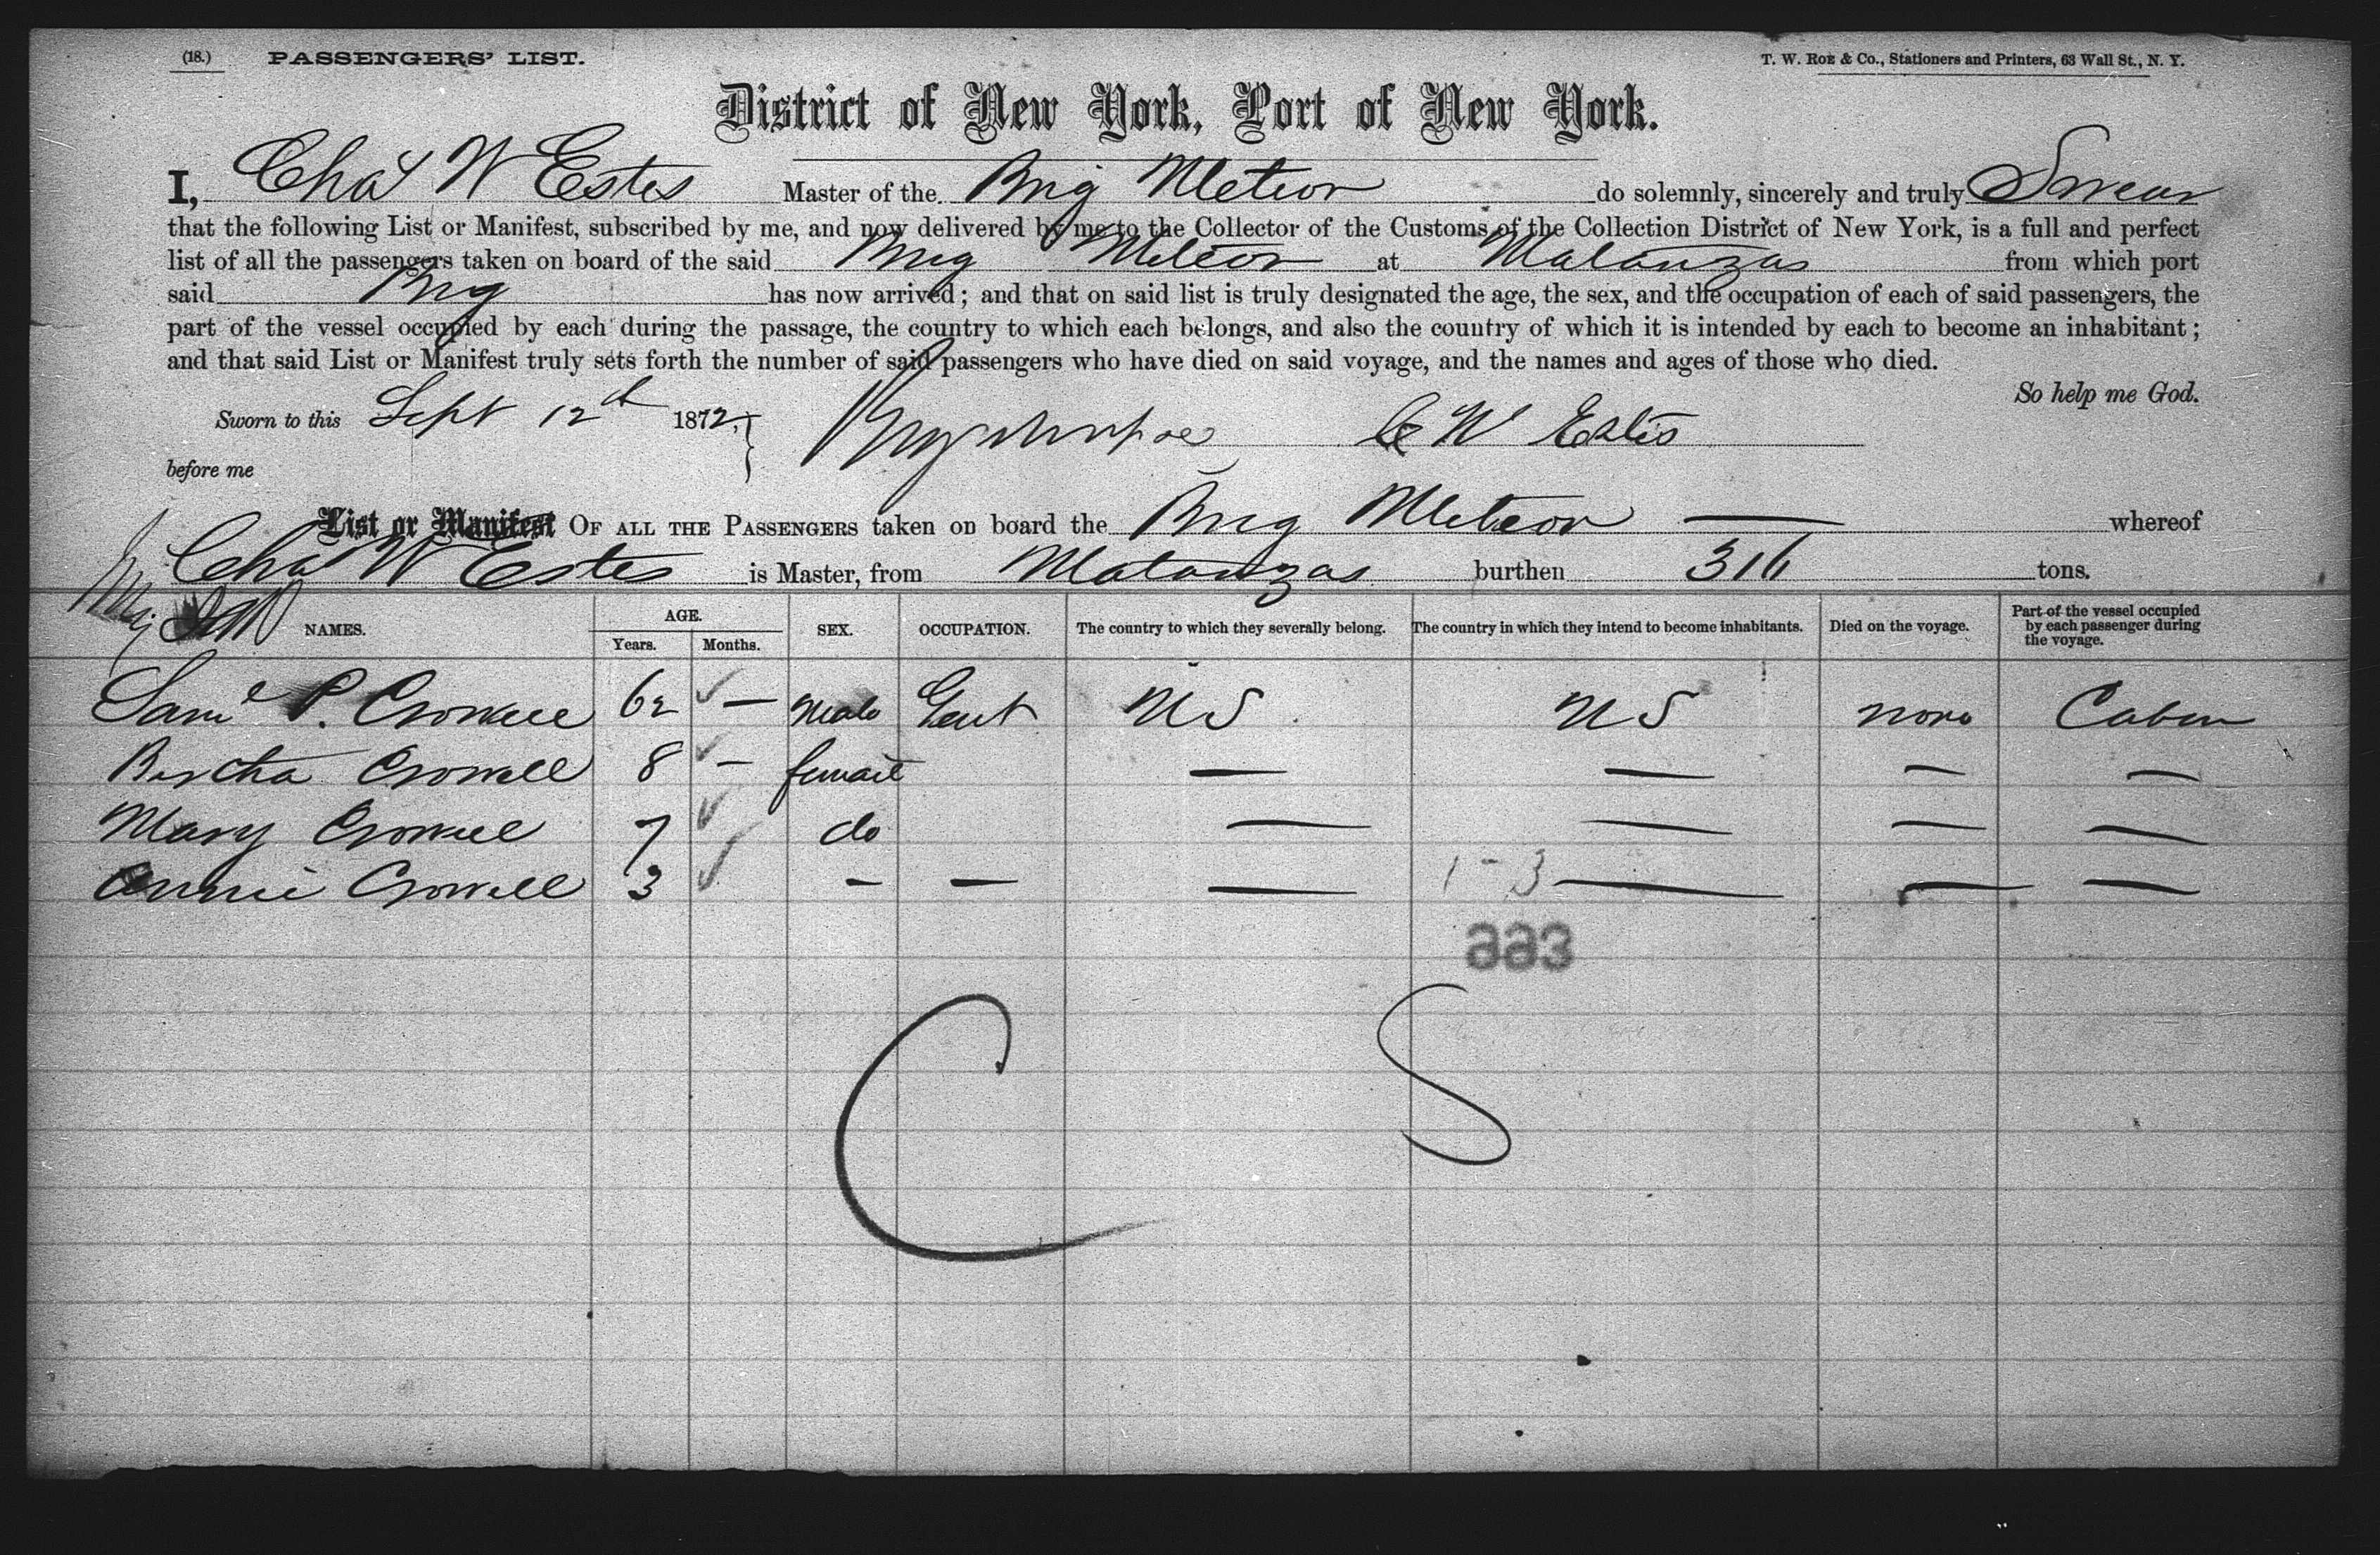 (18.) PASSENGERS' LIST. T. W. ROE & Co., Stationers and Printers, 63 Wall St., N. Y.
District of New York, Port of New York.
I, Chas W Estes Master of the Brig Meteor do solemnly, sincerely and truly Swear
that the following List or Manifest, subscribed by me, and now delivered by me to the Collector of the Customs of the Collection District of New York, is a full and perfect
list of all the passengers taken on board of the said Brig Meteor at Matanzas from which port
said Brig has now arrived; and that on said list is truly designated the age, the sex, and the occupation of each of said passengers, the
part of the vessel occupied by each during the passage, the country to which each belongs, and also the country of which it is intended by each to become an inhabitant;
and that said List or Manifest truly sets forth the number of said passengers who have died on said voyage, and the names and ages of those who died.
So help me God.
Sworn to this Sept 12th 1872, C W Estes
before me
List or Manifest OF ALL THE PASSENGERS taken on board the Brig Meteor — whereof
Chas W Estes is Master, from Matanzas burthen 316 tons.
NAMES. AGE. Years. Months. SEX. OCCUPATION. The country to which they severally belong. The country in which they intend to become inhabitants. Died on the voyage. Part of the vessel occupied by each passenger during the voyage.
Saml P. Crowell 62 — Male Gent US US none Cabin
Bertha Crowell 8 — female — — — —
Mary Crowell 7 do — — — —
Annie Crowell 3 — — — 1-3 — — —
993
C S